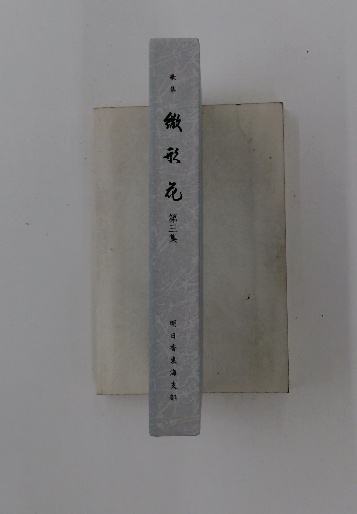 歌集
微形花
第三集
明日香東海支部